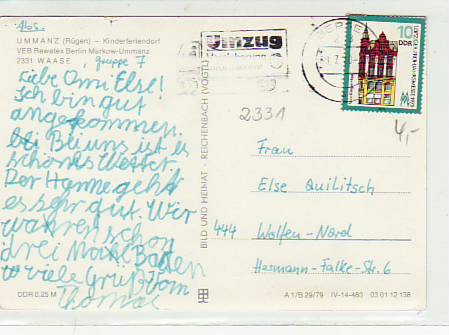 Abs.
UMMANZ (Rügen) – Kinderferiendorf
VEB Rewatex Berlin Markow-Ummanz
2331 WAASE
gruppe 7
Liebe Omi Else!
Ich bin gut
angekommen.
bei Bleuns ist es
schönes Wetter.
Der Hanne geht
es sehr gut. Wir
waren schon
drei Mal Baden
viele Grüß vom
Thomas
DDR 0,25 M
BILD UND HEIMAT · REICHENBACH (VOGTL)
Umzug
BERGEN
10
DDR
2331
4,-
Frau
Else Quilitsch
444 Wolfen-Nord
Hermann-Falke-Str. 6
A 1/B 29/79 IV-14-483 03 01 12 138